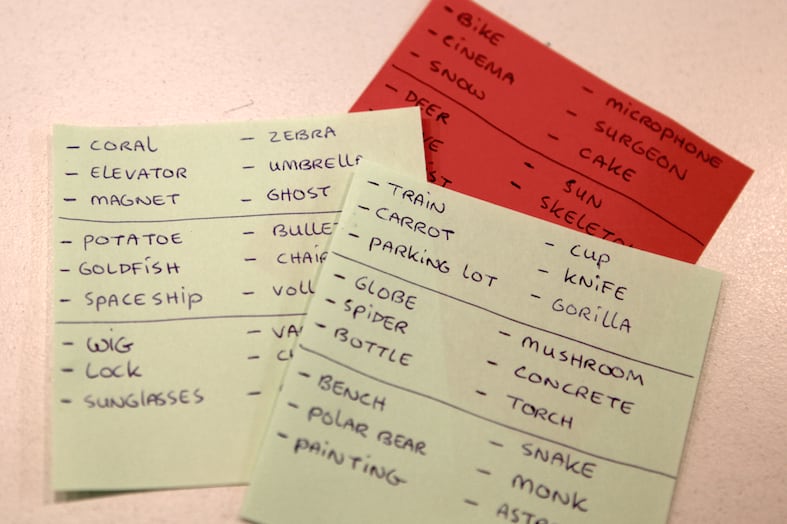 - BIKE
- CINEMA
- SNOW
- MICROPHONE
- SURGEON
- CAKE
- DEER
- SUN
- SKELETO
- CORAL
- ELEVATOR
- MAGNET
- ZEBRA
- UMBRELLA
- GHOST
- POTATOE
- GOLDFISH
- SPACESHIP
- BULLE
- CHAIR
- VOLL
- WIG
- LOCK
- SUNGLASSES
- VA
- TRAIN
- CARROT
- PARKING LOT
- CUP
- KNIFE
- GORILLA
- GLOBE
- SPIDER
- BOTTLE
- MUSHROOM
- CONCRETE
- TORCH
- BENCH
- POLAR BEAR
- PAINTING
- SNAKE
- MONK
- ASTR